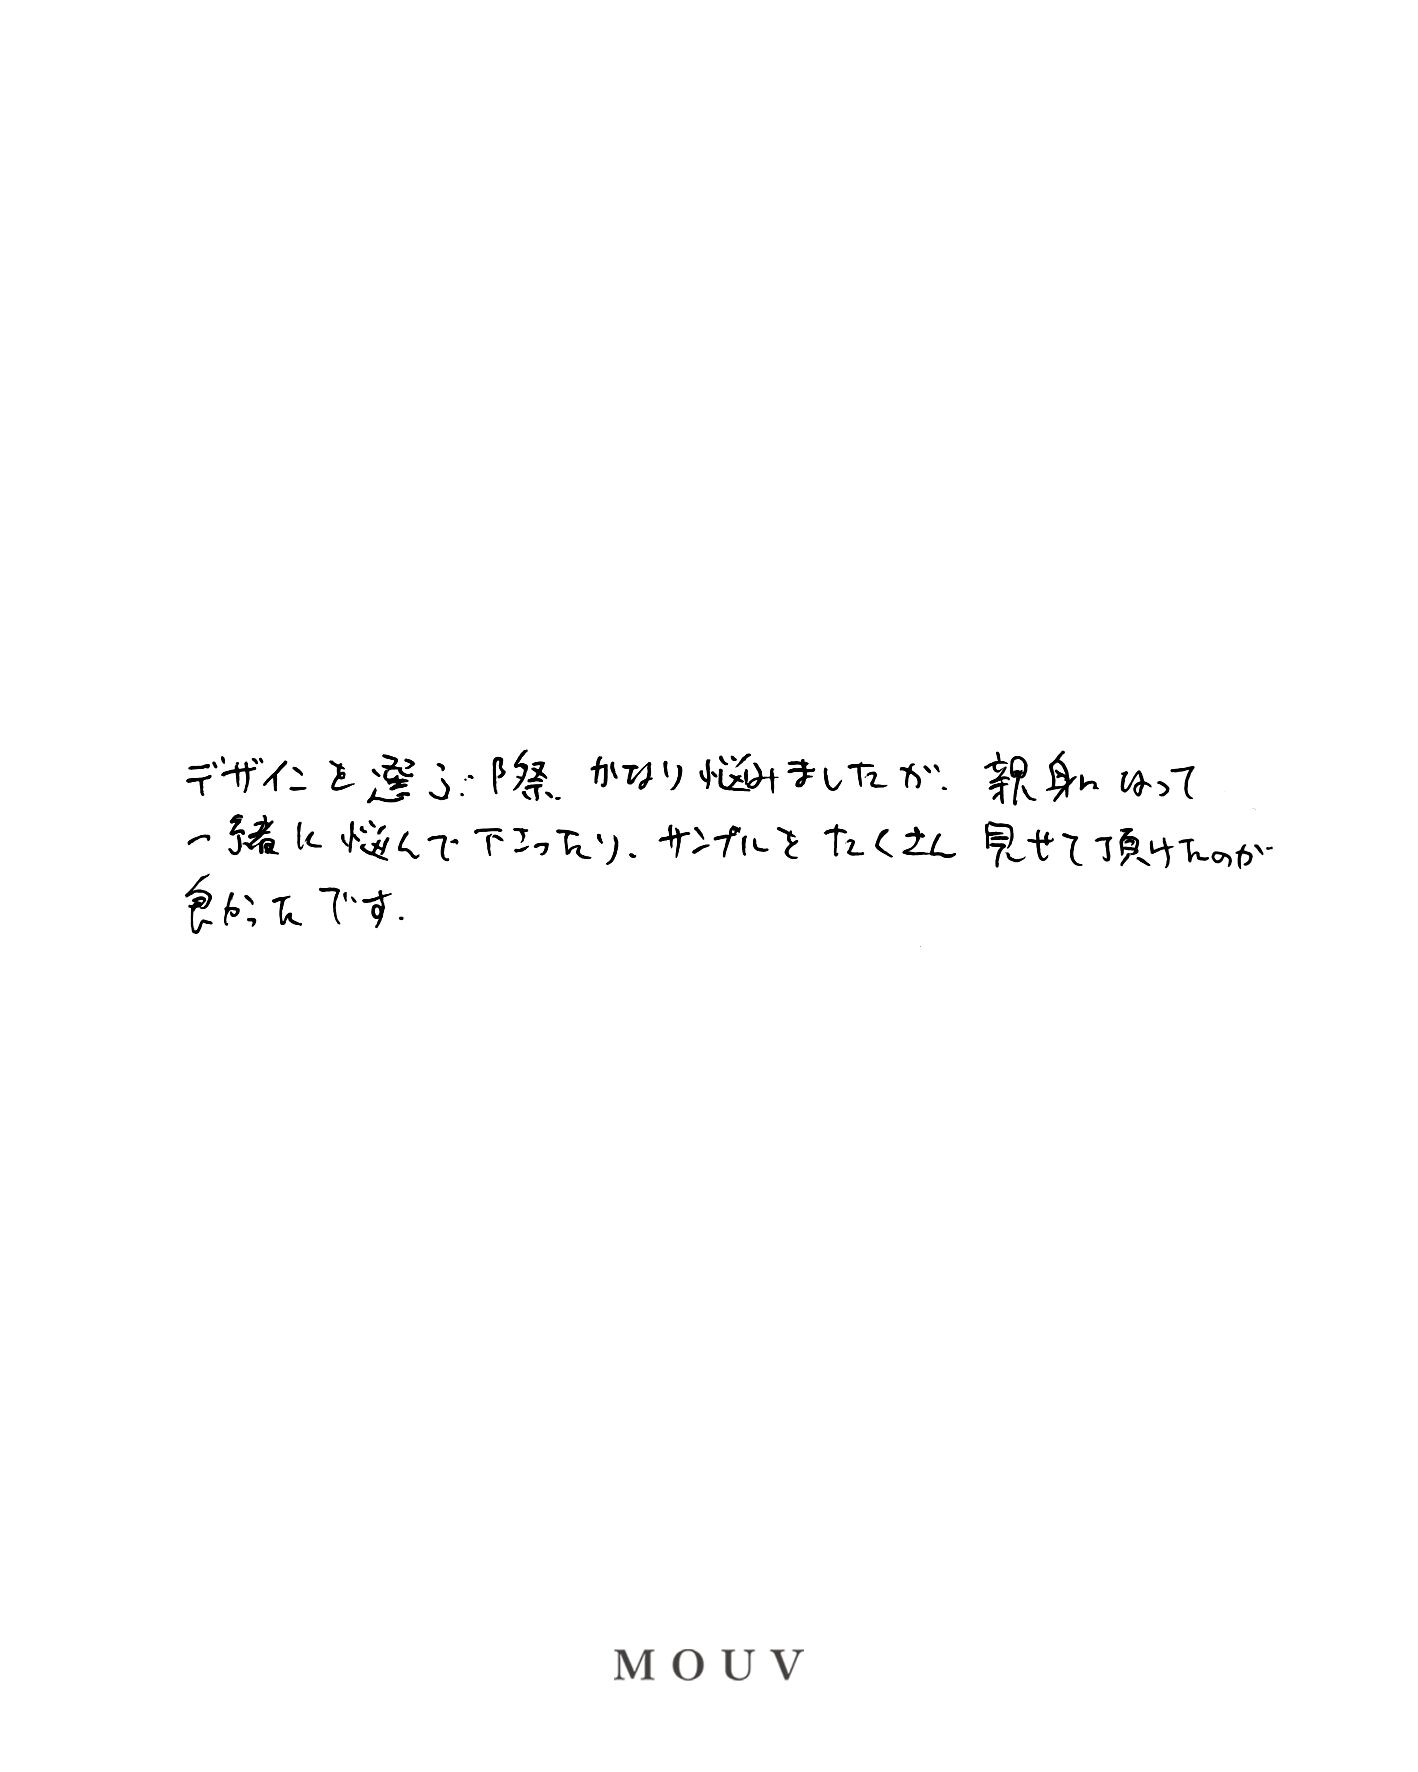 デザインを選ぶ際、かなり悩みましたが、親身になって
一緒に悩んで下さったり、サンプルをたくさん見せて頂けたのが
良かったです。
MOUV